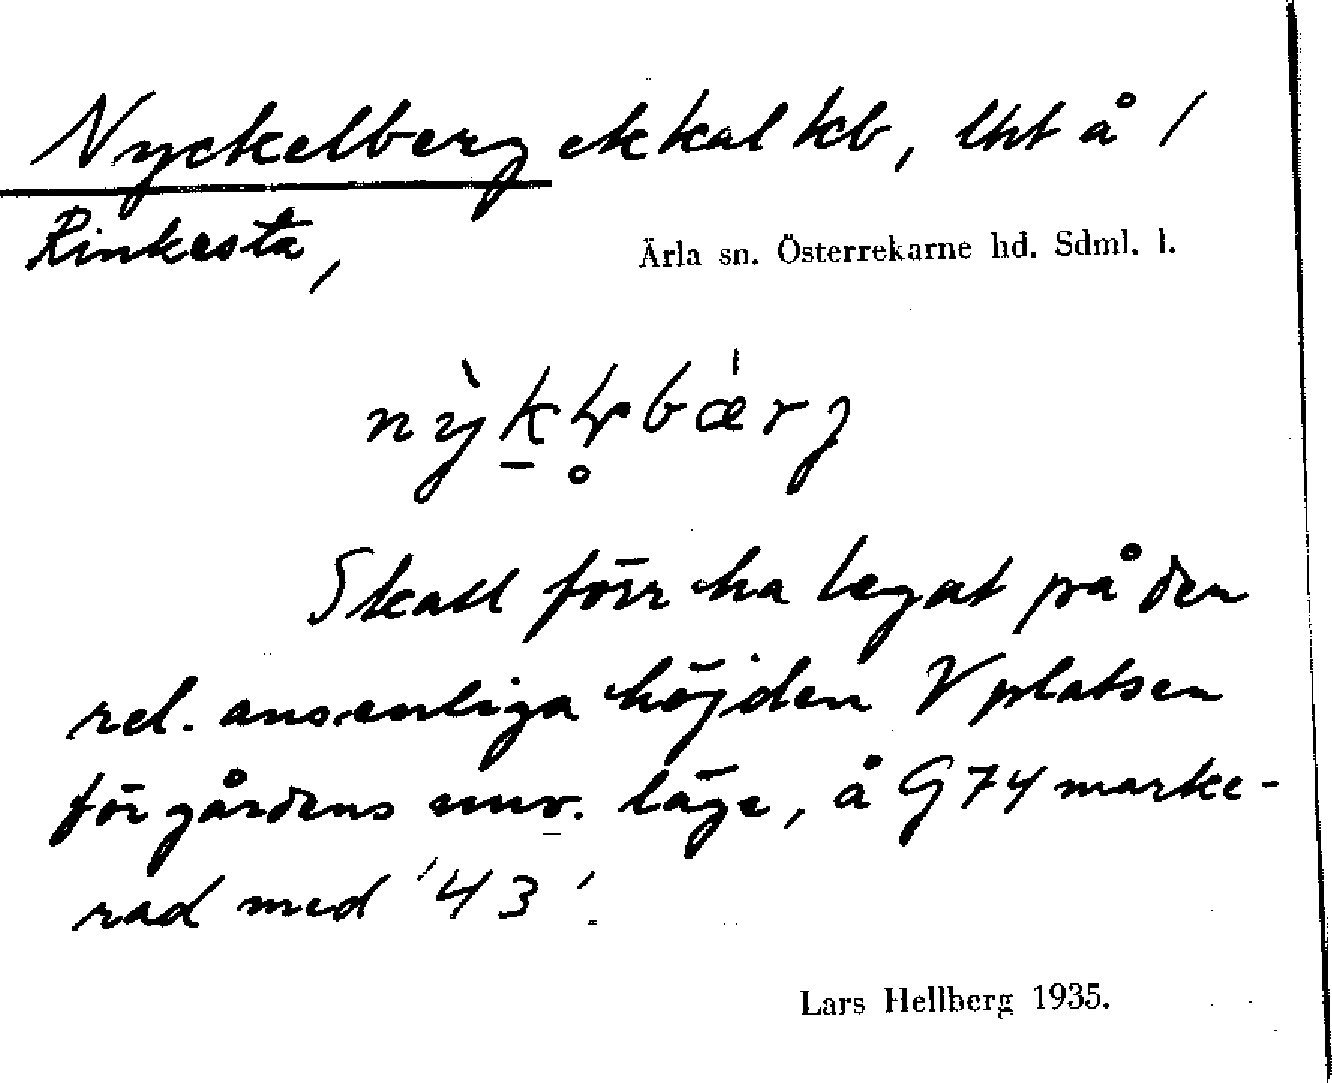 Nyckelberg ek kal kb, lht å 1
Rinkesta,
Ärla sn. Österrekarne hd. Sdml. l.
Skall förr ha legat på den
rel. ansenliga höjden V platsen
för gårdens nuv. läge, å G 74 marke-
rad med '43'.
Lars Hellberg 1935.